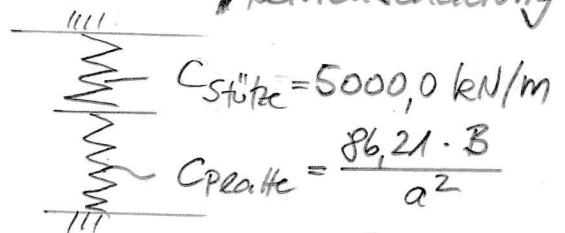 C_Stütze = 5000,0 kN/m
C_Platte = 86,21 · B / a²